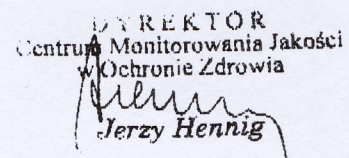 DYREKTOR
Centrum Monitorowania Jakości
w Ochronie Zdrowia
Jerzy Hennig